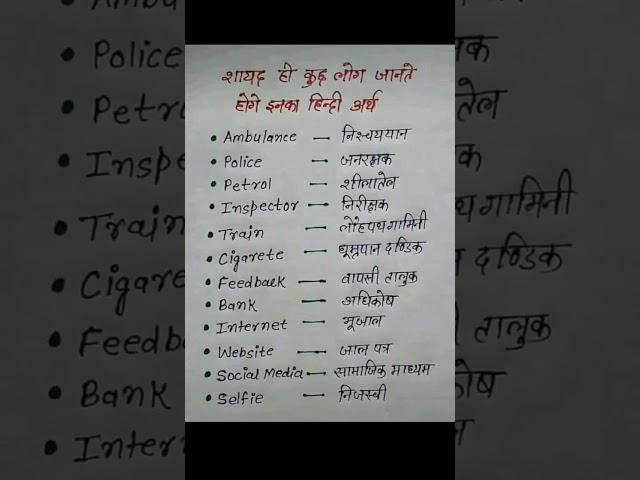 शायद ही कुछ लोग जानते
होगे इनका हिन्दी अर्थ
• Ambulance — निश्चययान
• Police — जनरक्षक
• Petrol — शीलातेल
• Inspector — निरीक्षक
• Train — लौहपथगामिनी
• Cigarete — धूम्रपान दण्डिक
• Feedback — वापसी तालुक
• Bank — अधिकोष
• Internet — भूजाल
• Website — जाल पत्र
• Social Media — सामाजिक माध्यम
• Selfie — निजस्वी